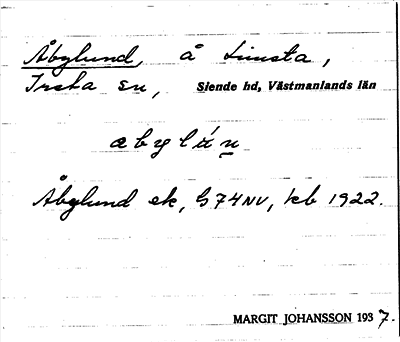 Åbylund, å Limsta,
Irsta sn, Siende hd, Västmanlands län
åbylún
Åbylund ek, G74NV, kb 1922.
MARGIT JOHANSSON 1937.